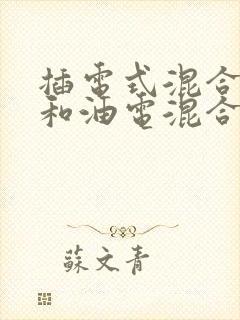 插電式混合
和油電混合
蘇文青